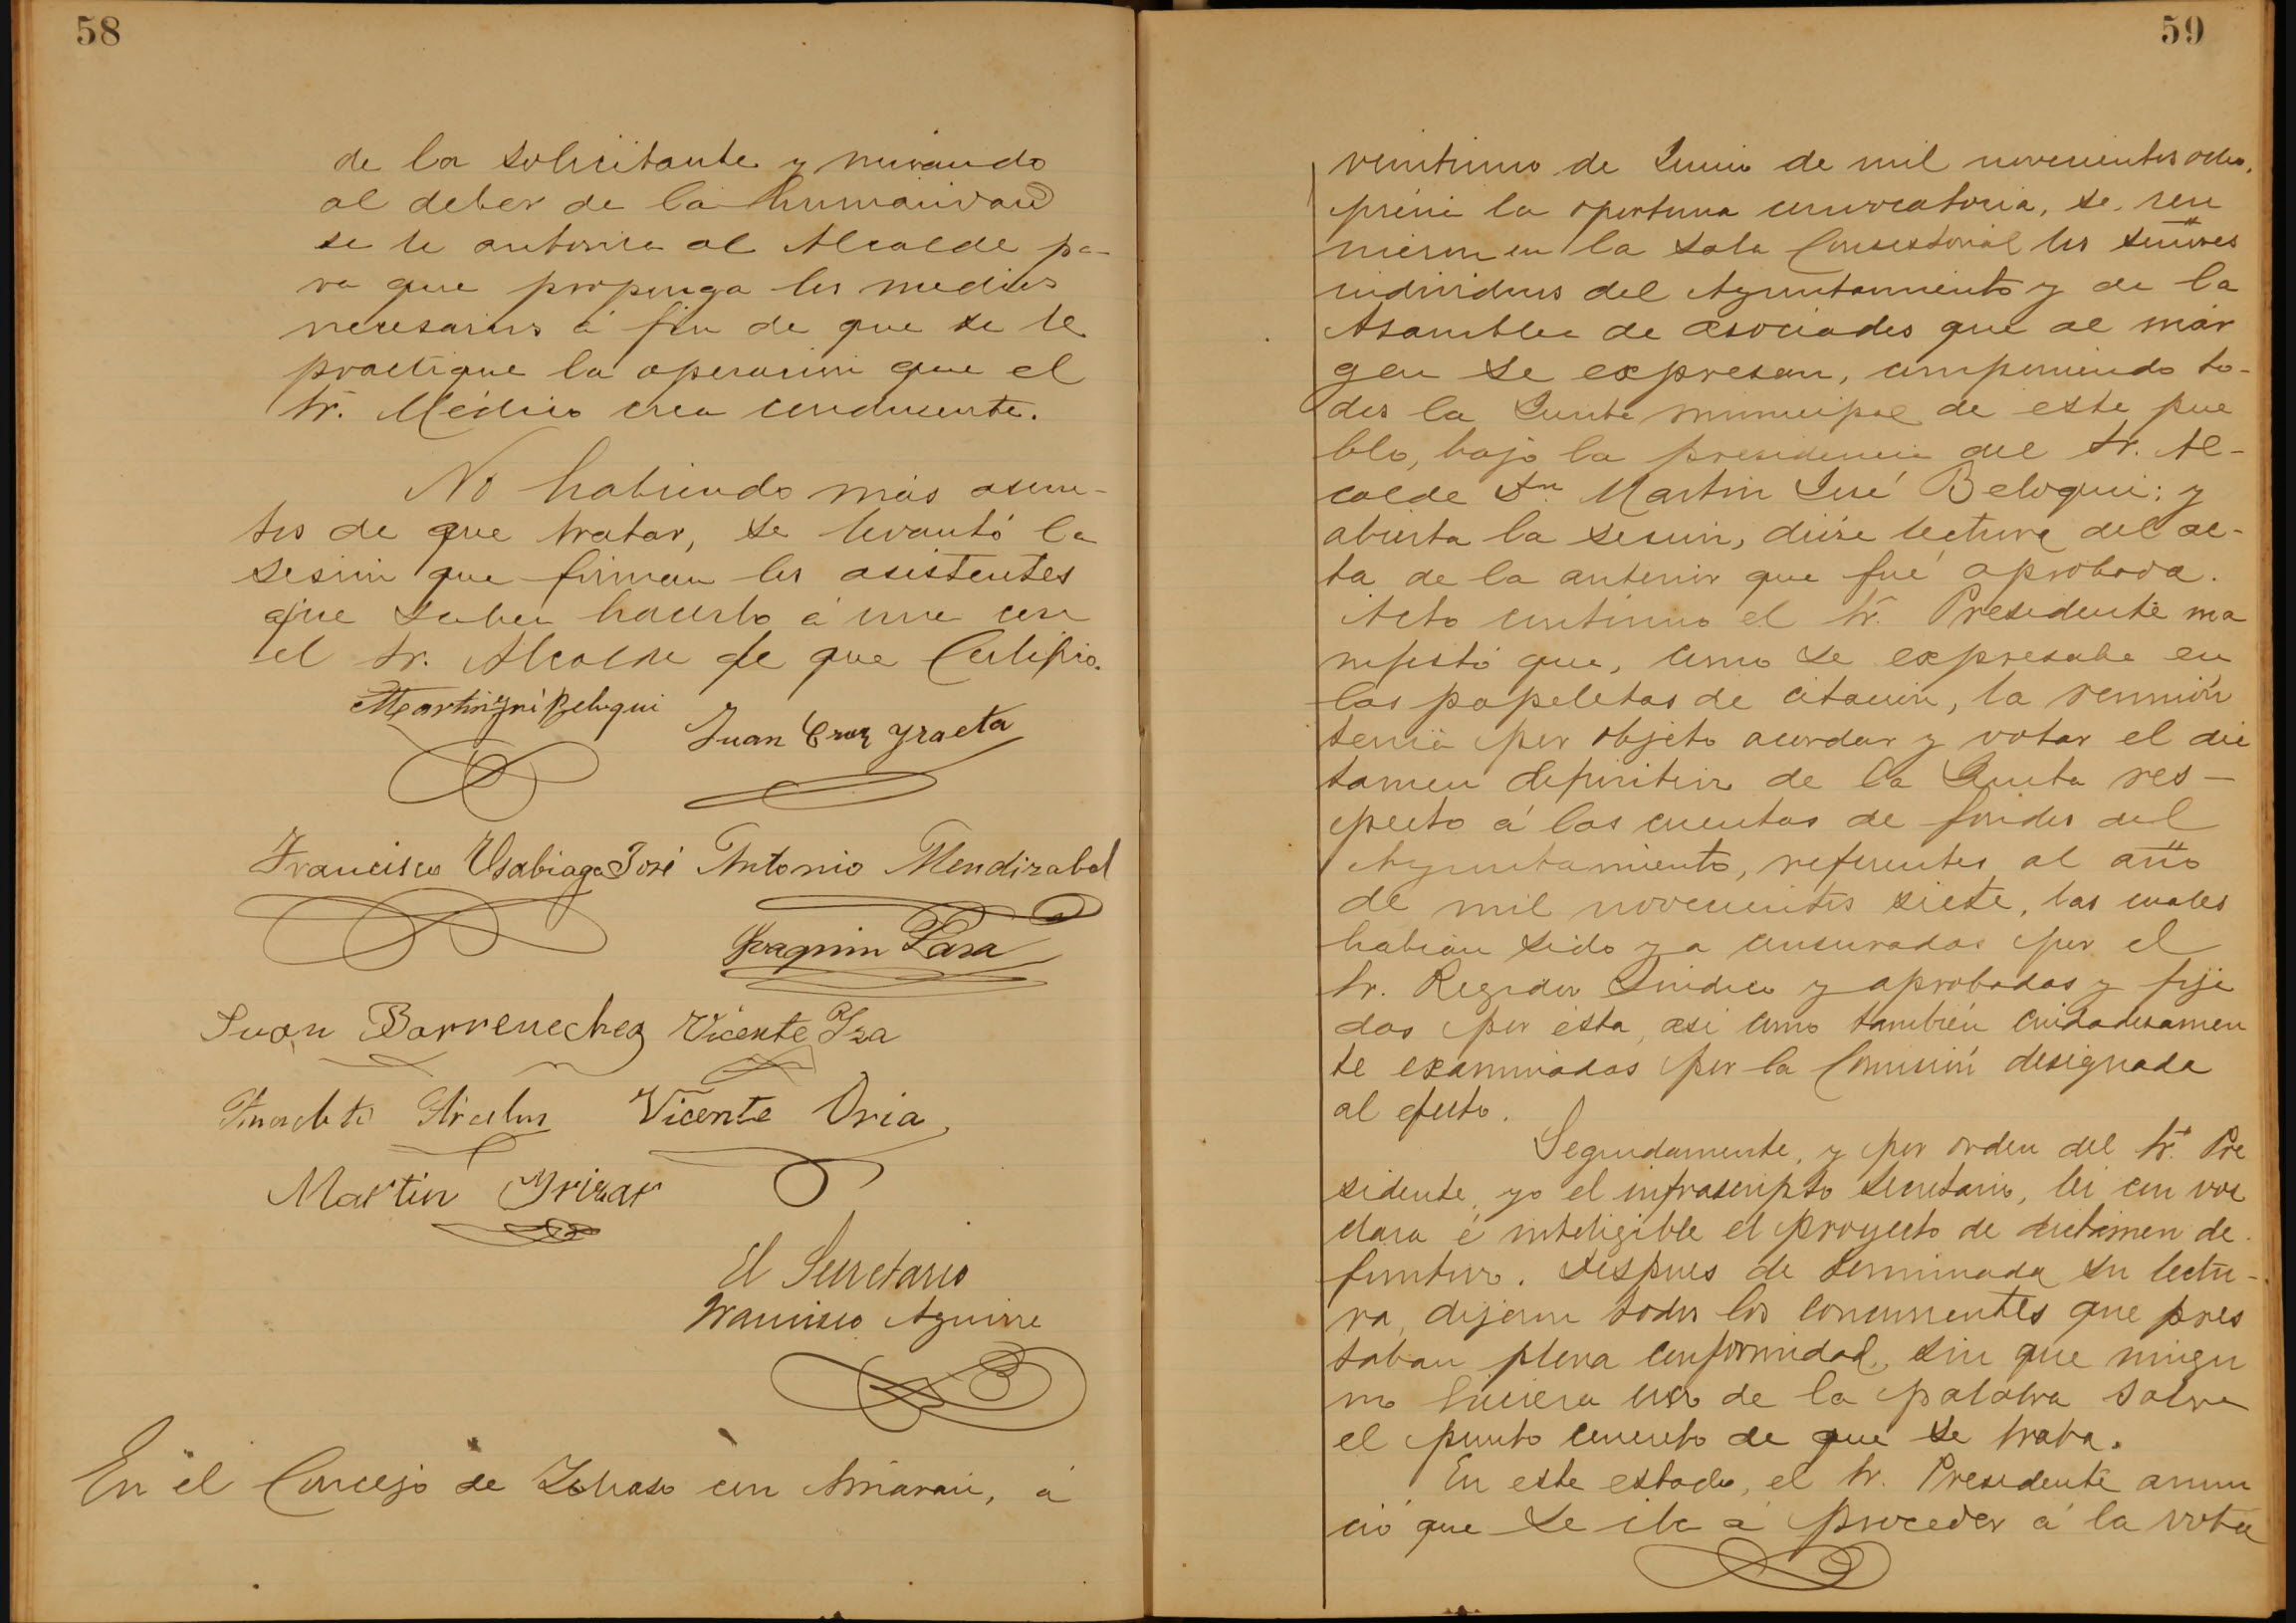 58
de la solicitante y mirando
al deber de la humanidad
se le autoriza al Alcalde pa-
ra que proponga los medios
necesarios á fin de que se le
practique la operación que el
Sr. Médico crea conducente.
No habiendo más asun-
tos de que tratar, se levantó la
sesión que firman los asistentes
que saben hacerlo á una con
el Sr. Alcalde de que Certifico.
Martin José Beloqui
Juan Cruz Yraeta
Francisco Usabiaga José Antonio Mendizabal
Joaquin Lasa
Juan Barrenechea Vicente Yza
Vicente Oria
Martin Yrizar
El Secretario
Francisco Aguirre
En el Concejo de con á
59
veintiuno de Junio de mil novecientos ocho,
prévia la oportuna convocatoria, se reu
nieron en la Sala Consistorial los señores
individuos del Ayuntamiento y de la
Asamblea de asociados que al már
gen se expresan, componiendo to-
dos la Junta municipal de este pue
blo, bajo la presidencia del Sr. Al-
calde Dn. Martin José Beloqui; y
abierta la sesión, dióse lectura del ac-
ta de la anterior que fué aprobada.
Acto contínuo el Sr. Presidente ma
nifestó que, como se expresaba en
las papeletas de citación, la reunión
tenia por objeto acordar y votar el dic
tamen definitivo de la Junta res-
pecto á las cuentas de fondos del
Ayuntamiento, referentes al año
de mil novecientos siete, las cuales
habian sido ya censuradas por el
Sr. Regidor Sindico y aprobadas y fija
das por ésta, asi como también cuidadosamen
te examinadas por la Comisión designada
al efecto.
Seguidamente, y por orden del Sr. Pre
sidente, yo el infrascripto Secretario, lei con voz
clara é inteligible el proyecto de dictámen de
finitivo. Despues de terminada su lectu-
ra, dijeron todos los concurrentes que pres
taban plena conformidad, sin que ningu
no hiciera uso de la palabra sobre
el punto concreto de que se trata.
En este estado, el Sr. Presidente anun
ció que se iba á proceder á la vota